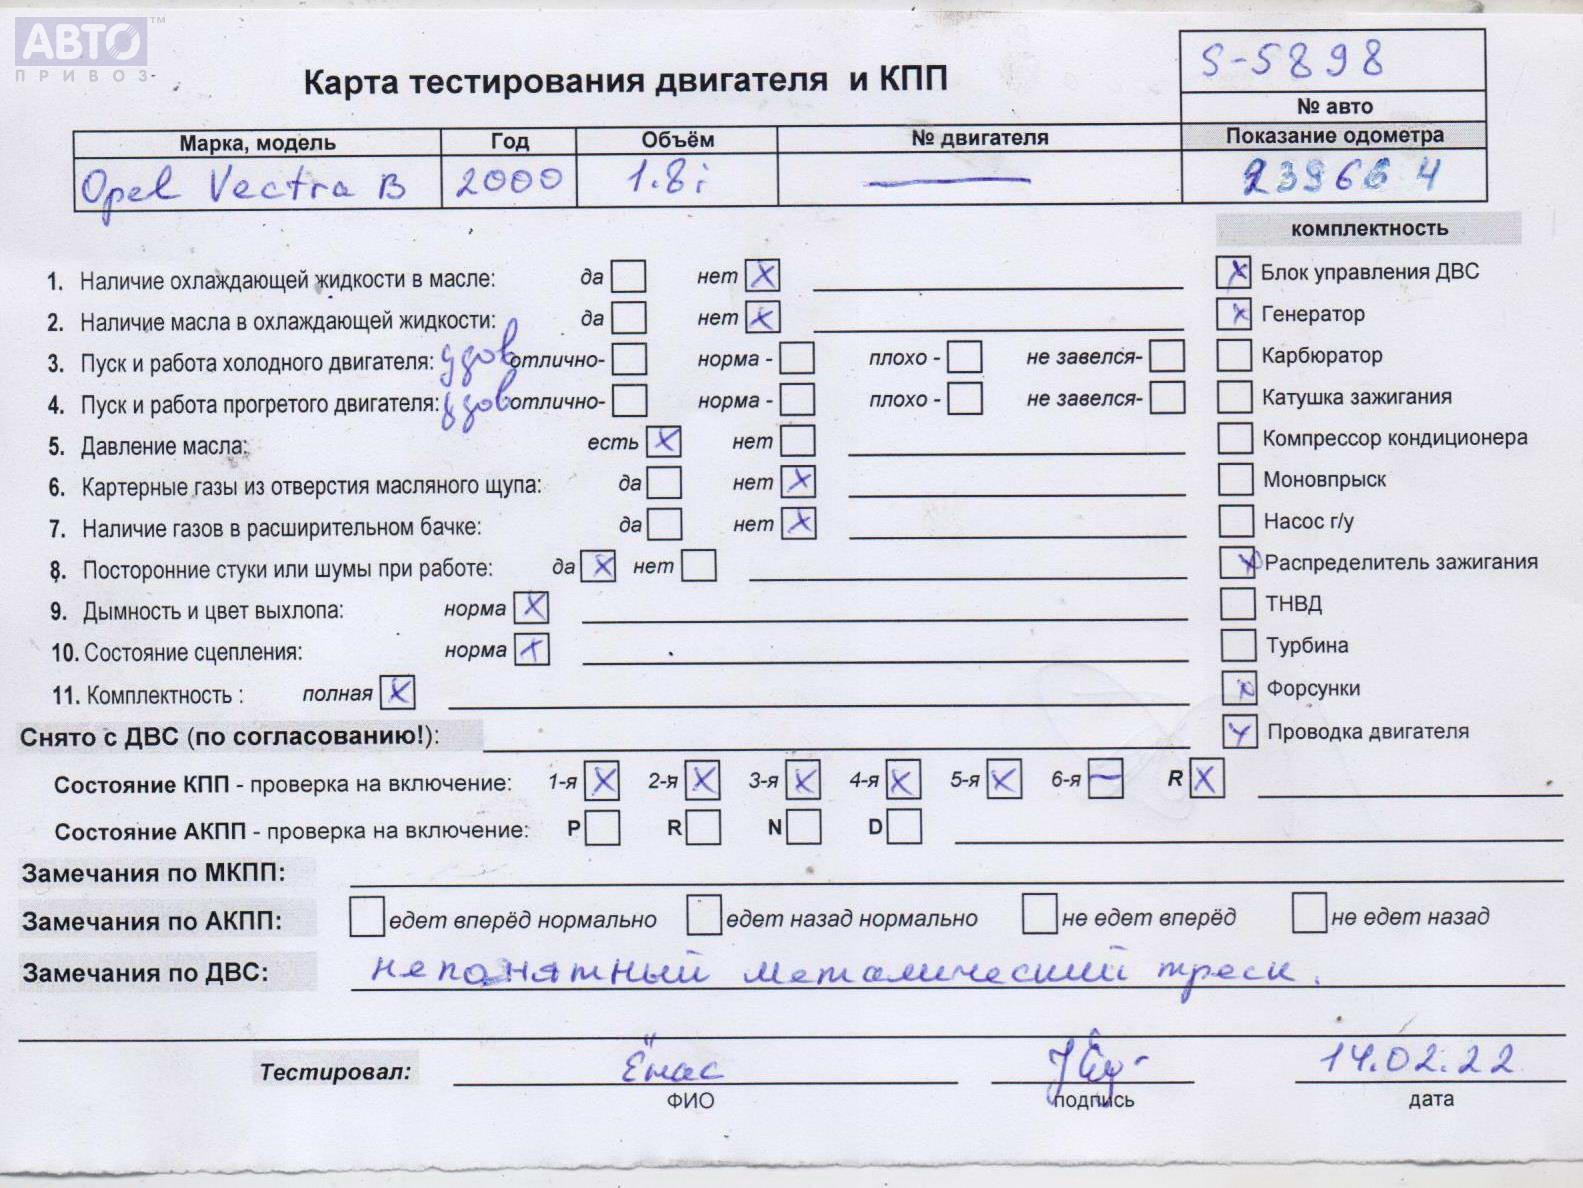 АВТО TM
ПРИВОЗ
Карта тестирования двигателя и КПП
S-5898
№ авто
Марка, модель Год Объём № двигателя Показание одометра
Opel Vectra B 2000 1.8i — 239664
комплектность
1. Наличие охлаждающей жидкости в масле: да нет X
2. Наличие масла в охлаждающей жидкости: да нет X
3. Пуск и работа холодного двигателя: удов отлично- норма - плохо - не завелся-
4. Пуск и работа прогретого двигателя: удов отлично- норма - плохо - не завелся-
5. Давление масла: есть X нет
6. Картерные газы из отверстия масляного щупа: да нет X
7. Наличие газов в расширительном бачке: да нет X
8. Посторонние стуки или шумы при работе: да X нет
9. Дымность и цвет выхлопа: норма X
10. Состояние сцепления: норма X
11. Комплектность : полная X
X Блок управления ДВС
X Генератор
Карбюратор
Катушка зажигания
Компрессор кондиционера
Моновпрыск
Насос г/у
X Распределитель зажигания
ТНВД
Турбина
X Форсунки
X Проводка двигателя
Снято с ДВС (по согласованию!):
Состояние КПП - проверка на включение: 1-я X 2-я X 3-я X 4-я X 5-я X 6-я — R X
Состояние АКПП - проверка на включение: P R N D
Замечания по МКПП:
Замечания по АКПП: едет вперёд нормально едет назад нормально не едет вперёд не едет назад
Замечания по ДВС: непонятный металический треск.
Тестировал: Ёнас 14.02.22
ФИО подпись дата